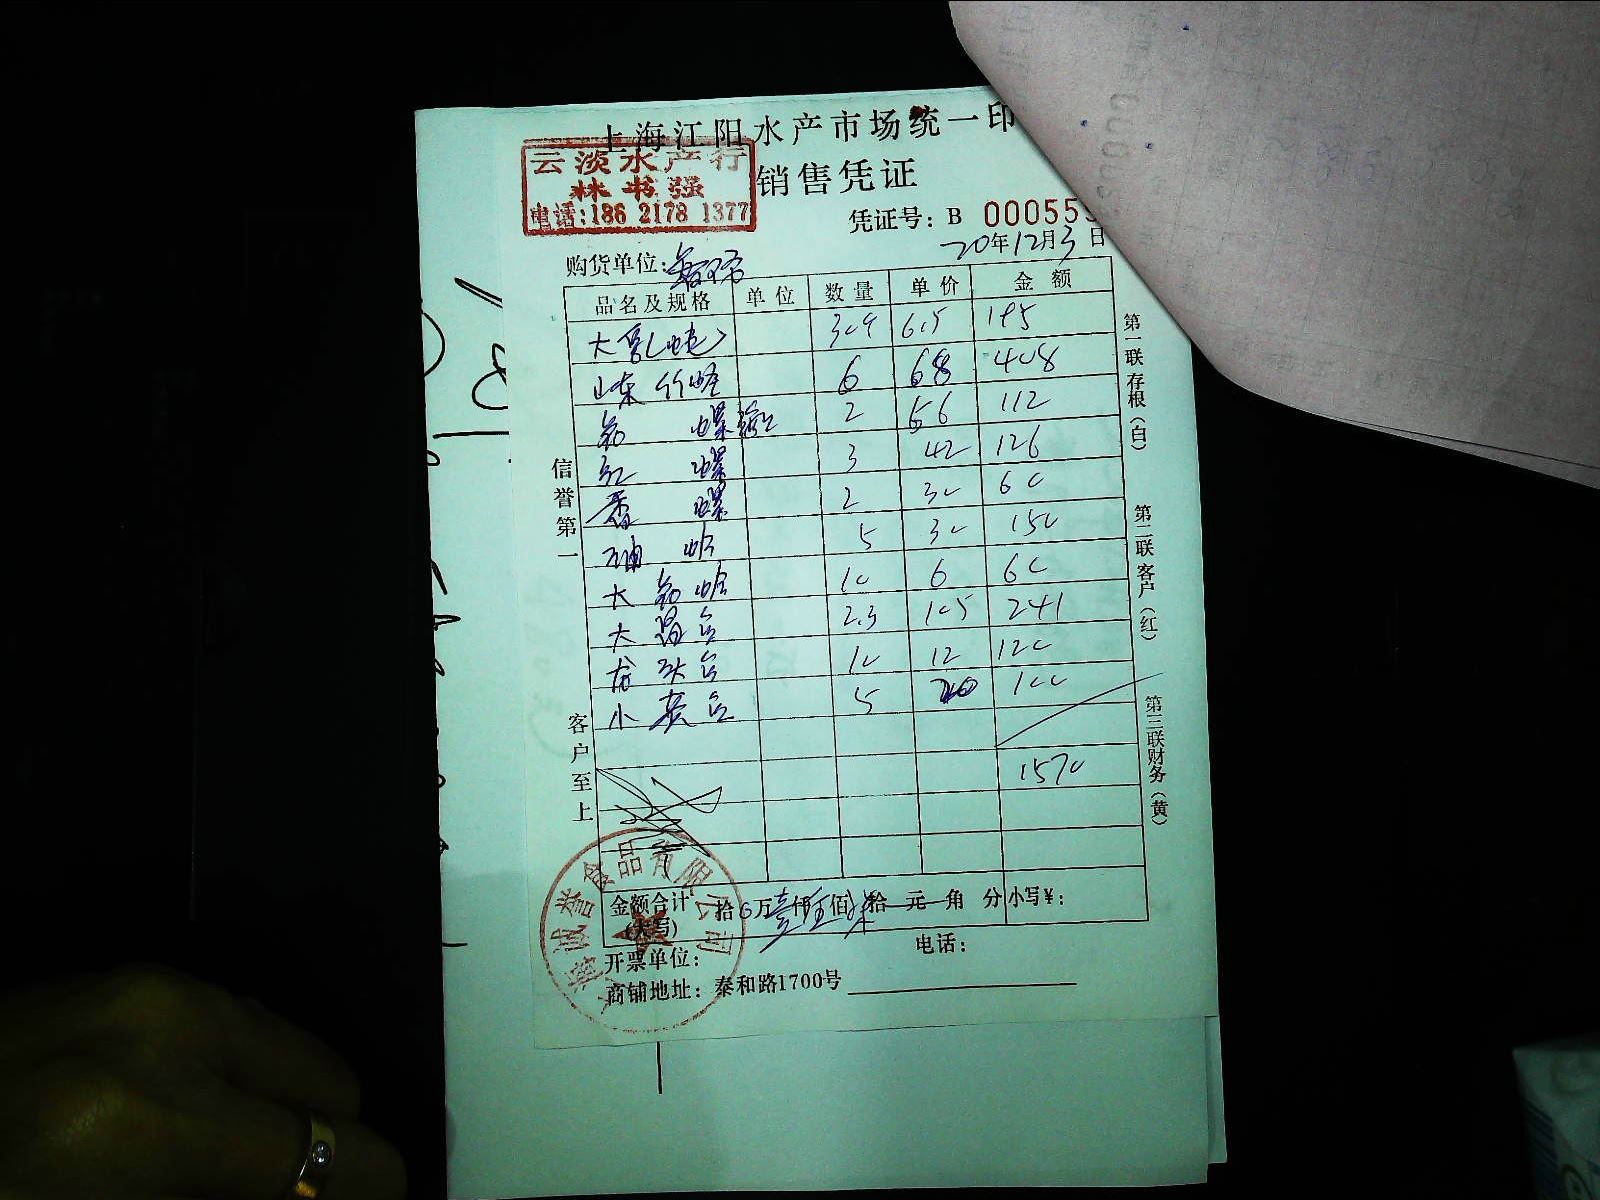 上海江阳水产市场统一印
云淡水产行
林书强
电话:186 2178 1377
销售凭证
凭证号: B 000555
20年12月3日
购货单位:
品名及规格 单位 数量 单价 金额
大 6.5 195
山东竹蛏 6 68 408
螺 2 56 112
红 螺 3 42 126
香 螺 2 30 60
油蛤 5 30 150
大 蛤 10 6 60
大 2.3 105 241
龙头 10 12 120
小黄 5 20 100
1570
信誉第一
客户至上
第一联 存根（白）
第二联 客户（红）
第三联 财务（黄）
诚誉食品有限公司
金额合计 拾 万壹仟伍佰柒拾元角分 小写¥:
(大写)
开票单位: 电话:
商铺地址: 泰和路1700号